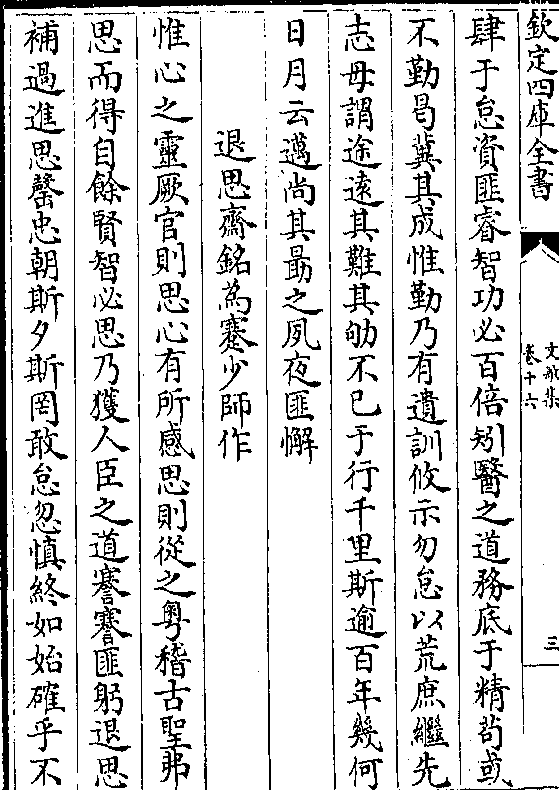 欽定四庫全書
文敏集
卷十六
三
肆于怠資匪睿智功必百倍矧醫之道務底于精苟或
不勤曷冀其成惟勤乃有遺訓攸示勿怠以荒庶繼先
志毋謂途遠其難其劬不已于行千里斯逾百年幾何
日月云邁尚其勗之夙夜匪懈
退思齋銘為蹇少師作
惟心之靈厥官則思心有所感思則從之粤稽古聖弗
思而得自餘賢智必思乃獲人臣之道謇謇匪躬退思
補過進思罄忠朝斯夕斯罔敢怠忽慎終如始確乎不